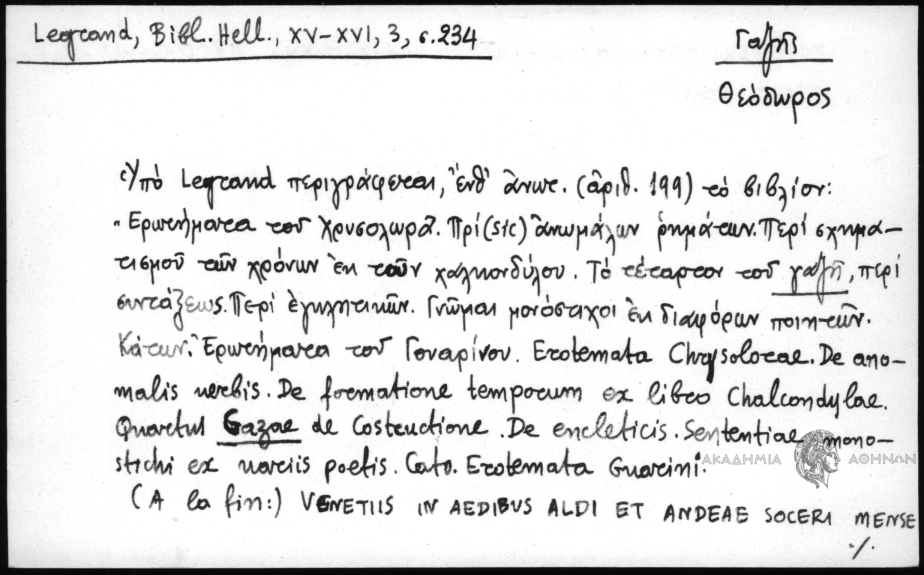 Legrand, Bibl. Hell., XV-XVI, 3, σ.234
Γαζῆς
Θεόδωρος
Ὑπό Legrand περιγράφεται, ἔνθ' ἄνωτ. (ἀριθ. 199) τό βιβλίον:
"Ερωτήματα τοῦ Χρυσολωρᾶ. Πρί (sic) ἀνωμάλων ῥημάτων. Περί σχημα-
τισμοῦ τῶν χρόνων ἐκ τοῦν χαλκονδύλου. Τό τέταρτον τοῦ γαζῆ, περί
συντάξεως. Περί ἐγκλητικῶν. Γνῶμαι μονόστιχοι ἐκ διαφόρων ποιητῶν.
Κάτων. Ἐρωτήματα τοῦ Γουαρίνου. Erotemata Chrysolorae. De ano-
malis verbis. De formatione temporum ex libro Chalcondylae.
Quartus Gazae de Costructione. De encleticis. Sententiae mono-
stichi ex variis poetis. Cato. Erotemata Guarini.
ΑΚΑΔΗΜΙΑ ΑΘΗΝΩΝ
(A la fin:) VENETIIS IN AEDIBUS ALDI ET ANDEAE SOCERI MENSE
./.